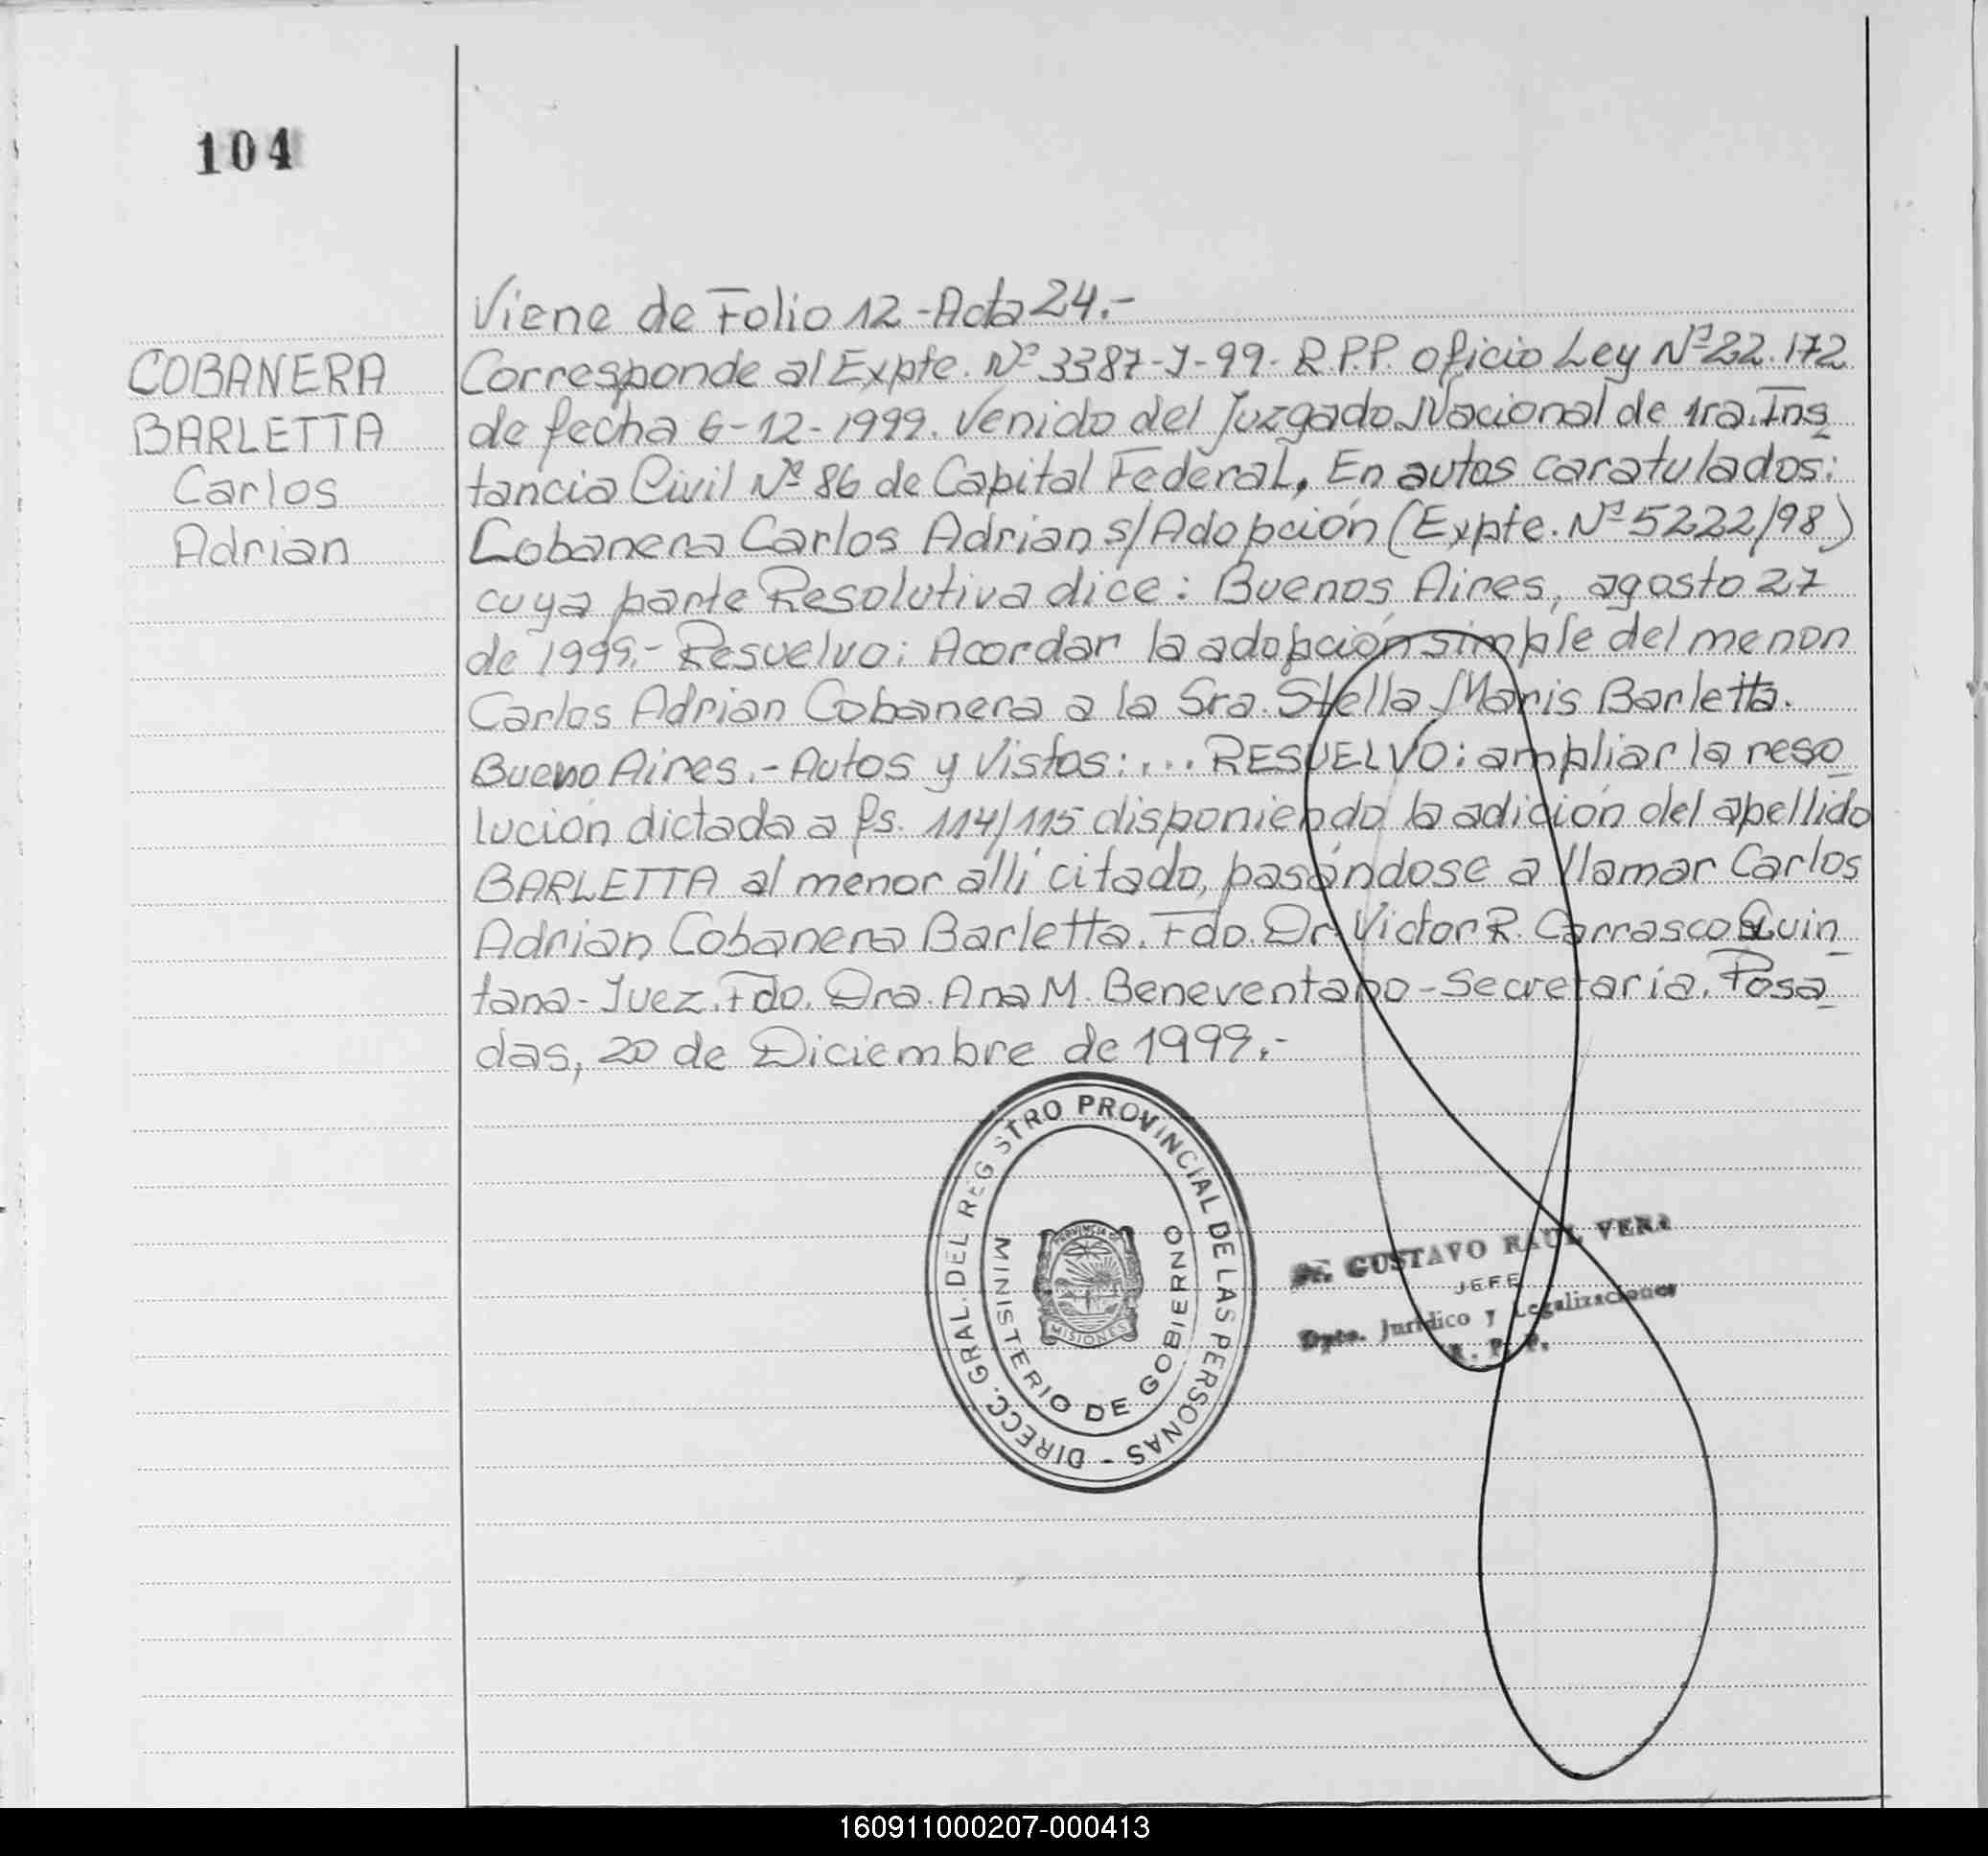 104
Viene de Folio 12 - Acta 24.-
COBANERA
BARLETTA
Carlos
Adrian
Corresponde al Expte. Nº 3387-J-99- R.P.P. oficio Ley Nº 22.172
de fecha 6-12-1999. Venido del Juzgado Nacional de 1ra. Ins
tancia Civil Nº 86 de Capital Federal, En autos caratulados:
Cobanera Carlos Adrian s/Adopción (Expte. Nº 5222/98)
cuya parte Resolutiva dice: Buenos Aires, agosto 27
de 1999.- Resuelvo: Acordar la adopción simple del menor
Carlos Adrian Cobanera a la Sra. Stella Maris Barletta.
Bueno Aires.- Autos y Vistos:... RESUELVO: ampliar la reso
lución dictada a fs. 114/115 disponiendo la adición del apellido
BARLETTA al menor allí citado, pasándose a llamar Carlos
Adrian Cobanera Barletta. Fdo. Dr. Victor R. Carrasco Quin
tana - Juez. Fdo. Dra. Ana M. Beneventano - Secretaria. Posa
das, 20 de Diciembre de 1999.-
DIRECC. GRAL. DEL REGISTRO PROVINCIAL DE LAS PERSONAS -
MINISTERIO DE GOBIERNO
PROVINCIA DE
MISIONES
Dr. GUSTAVO RAUL VERA
JEFE
Dpto. Jurídico y Legalizaciones
R. P. P.
160911000207-000413